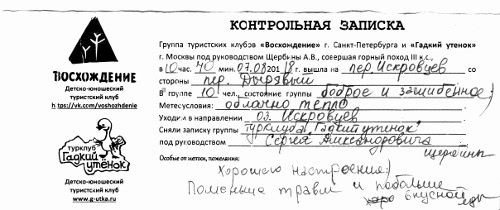 КОНТРОЛЬНАЯ ЗАПИСКА
Группа туристских клубов «Восхождение» г. Санкт-Петербурга и «Гадкий утенок»
г. Москвы под руководством Щербины А.В., совершая горный поход III к.с.,
в 10 час. 40 мин. 07.08 2018 г. вышла на пер. Искровцев со
стороны пер. Дырявый
В группе 10 чел., состояние группы бодрое и зашибенное)
Метеоусловия: облачно тепло
Уходим в направлении оз. Искровцев
Сняли записку группы турклуба "Гадкий утенок"
под руководством Сергея Александровича
Щербины
Особые отметки, пожелания:
Хорошего настроения)
Поменьше травм и побольше
вкусной еды
ВОСХОЖДЕНИЕ
Детско-юношеский
туристский клуб
https://vk.com/voshozhdenie
турклуб
Гадкий
утёнок
Детско-юношеский
туристский клуб
www.g-utka.ru